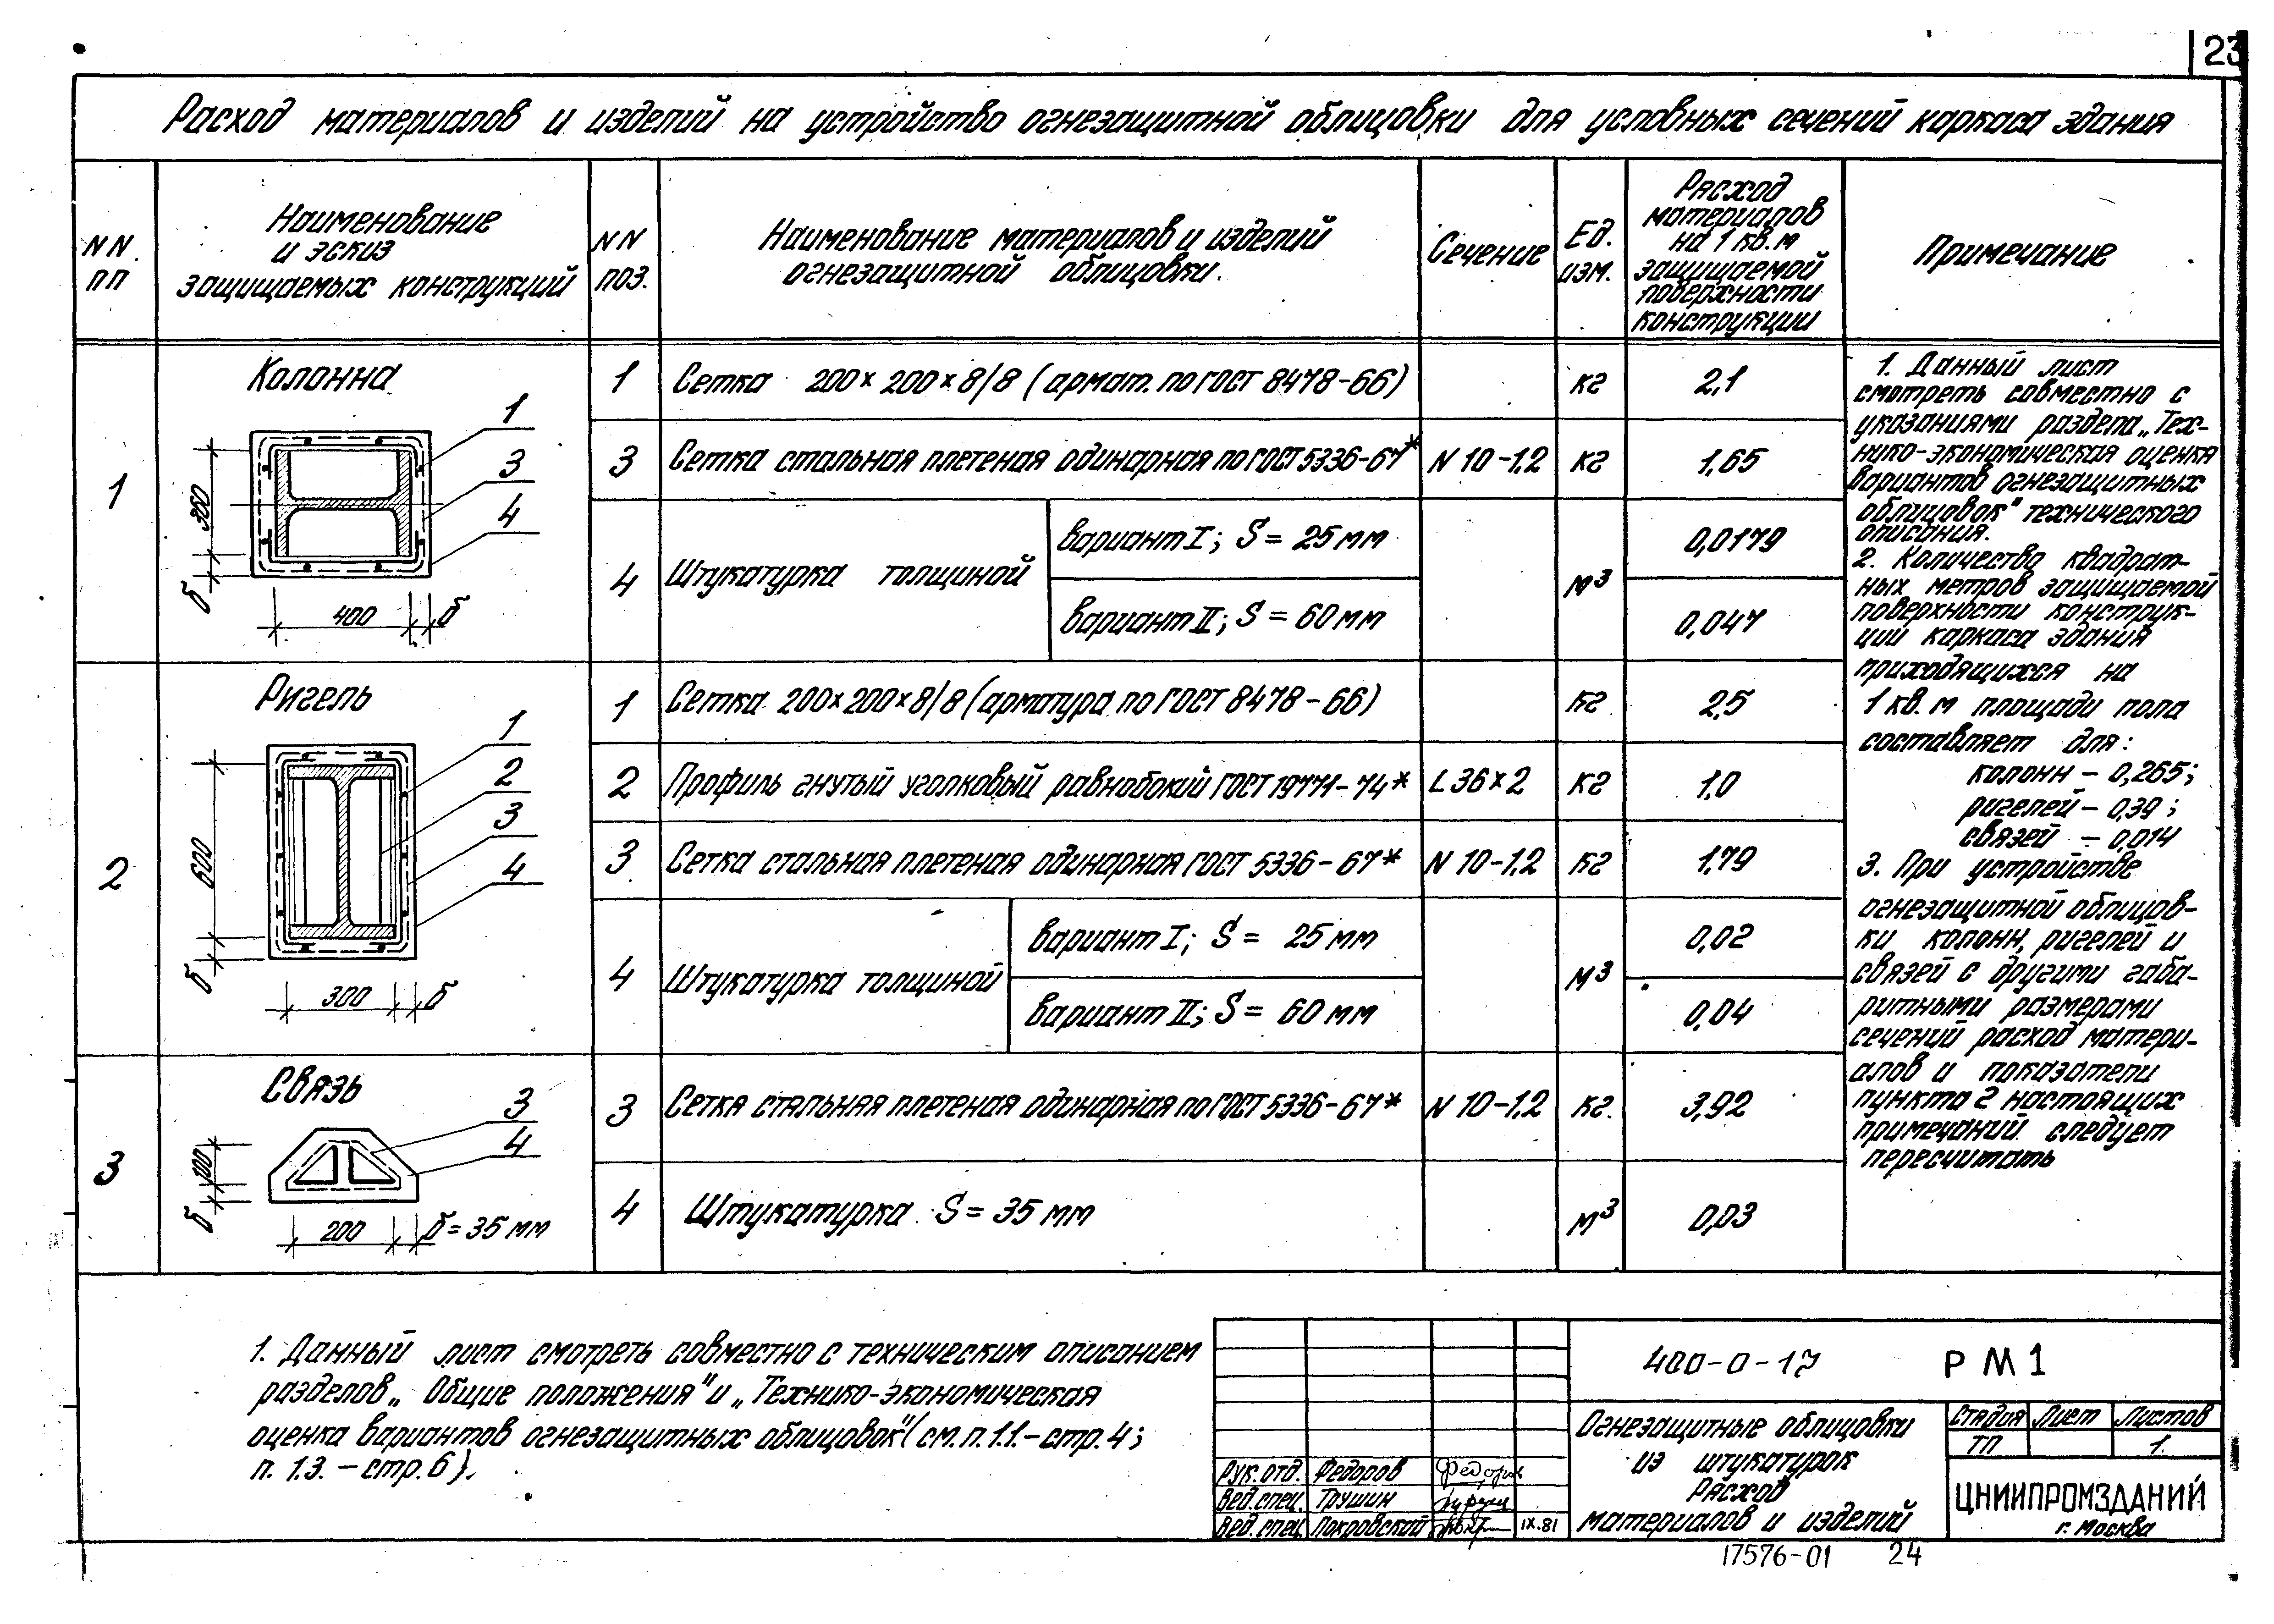 23
Расход материалов и изделий на устройство огнезащитной облицовки для условных сечений каркаса здания
NN
пп
Наименование
и эскиз
защищаемых конструкций
NN
поз.
Наименование материалов и изделий
огнезащитной облицовки.
Сечение
Ед.
изм.
Расход
материалов
на 1 кв.м
защищаемой
поверхности
конструкции
Примечание
1
Колонна
1
3
4
360
δ
400
δ
1
Сетка 200×200×8/8 (армат. по ГОСТ 8478-66)
кг
2,1
3
Сетка стальная плетеная одинарная по ГОСТ 5336-67*
N 10-1,2
кг
1,65
4
Штукатурка толщиной
вариант I; S = 25 мм
м³
0,0179
вариант II; S = 60 мм
0,047
2
Ригель
1
2
3
4
600
δ
300
δ
1
Сетка 200×200×8/8 (арматура по ГОСТ 8478-66)
кг
2,5
2
Профиль гнутый уголковый равнобокий ГОСТ 19771-74*
L 36×2
кг
1,0
3
Сетка стальная плетеная одинарная ГОСТ 5336-67*
N 10-1,2
кг
1,79
4
Штукатурка толщиной
вариант I; S = 25 мм
м³
0,02
вариант II; S = 60 мм
0,04
3
Связь
3
4
100
δ
200
δ = 35 мм
3
Сетка стальная плетеная одинарная по ГОСТ 5336-67*
N 10-1,2
кг.
3,92
4
Штукатурка S = 35 мм
м³
0,03
1. Данный лист
смотреть совместно с
указаниями раздела „Тех-
нико-экономическая оценка
вариантов огнезащитных
облицовок" технического
описания.
2. Количество квадрат-
ных метров защищаемой
поверхности конструк-
ций каркаса здания
приходящихся на
1 кв. м площади пола
составляет для:
колонн - 0,265;
ригелей - 0,39;
связей - 0,014
3. При устройстве
огнезащитной облицов-
ки колонн, ригелей и
связей с другими габа-
ритными размерами
сечений расход матери-
алов и показатели
пункта 2 настоящих
примечаний следует
пересчитать
1. Данный лист смотреть совместно с техническим описанием
разделов „Общие положения" и „Технико-экономическая
оценка вариантов огнезащитных облицовок" (см. п. 1.1.-стр. 4;
п. 1.3. - стр. 6).
400-0-17 РМ1
Огнезащитные облицовки
из штукатурок
Расход
материалов и изделий
Стадия Лист Листов
ТП 1.
ЦНИИПРОМЗДАНИЙ
г. Москва
Рук. отд. Федоров Федоров
Вед. спец. Трушин
Вед. спец. Покровский IX.81
17576-01 24